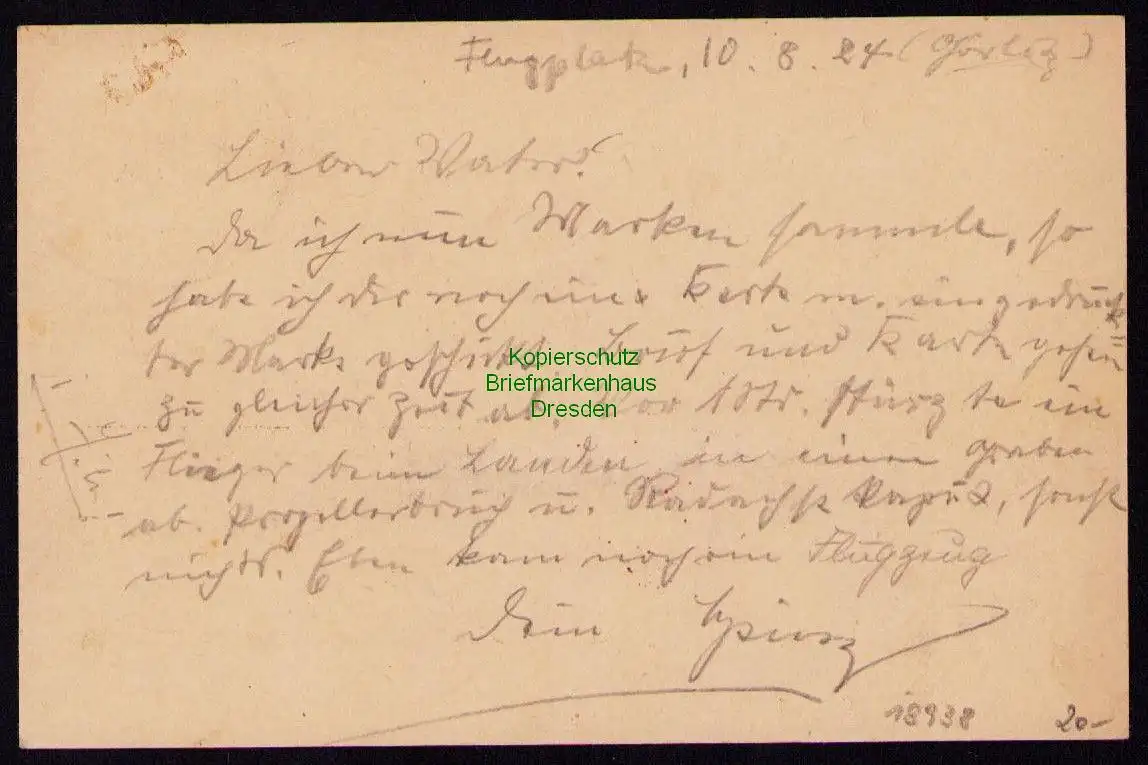 Flugplatz, 10. 8. 24 (Görlitz)
Lieber Vater!
Da ich nun Marken sammle, so
habe ich dir noch eine Karte m. eingedruck-
ter Marke geschickt. Brief und Karte gehen
zu gleicher Zeit ab. Vor 1 Std. stürzte ein
Flieger beim Landen in einen Graben
ab. Propellerbruch u. Radachse kaput, sonst
nichts. Eben kam noch ein Flugzeug
Dein Heinz
Kopierschutz
Briefmarkenhaus
Dresden
18938 20-